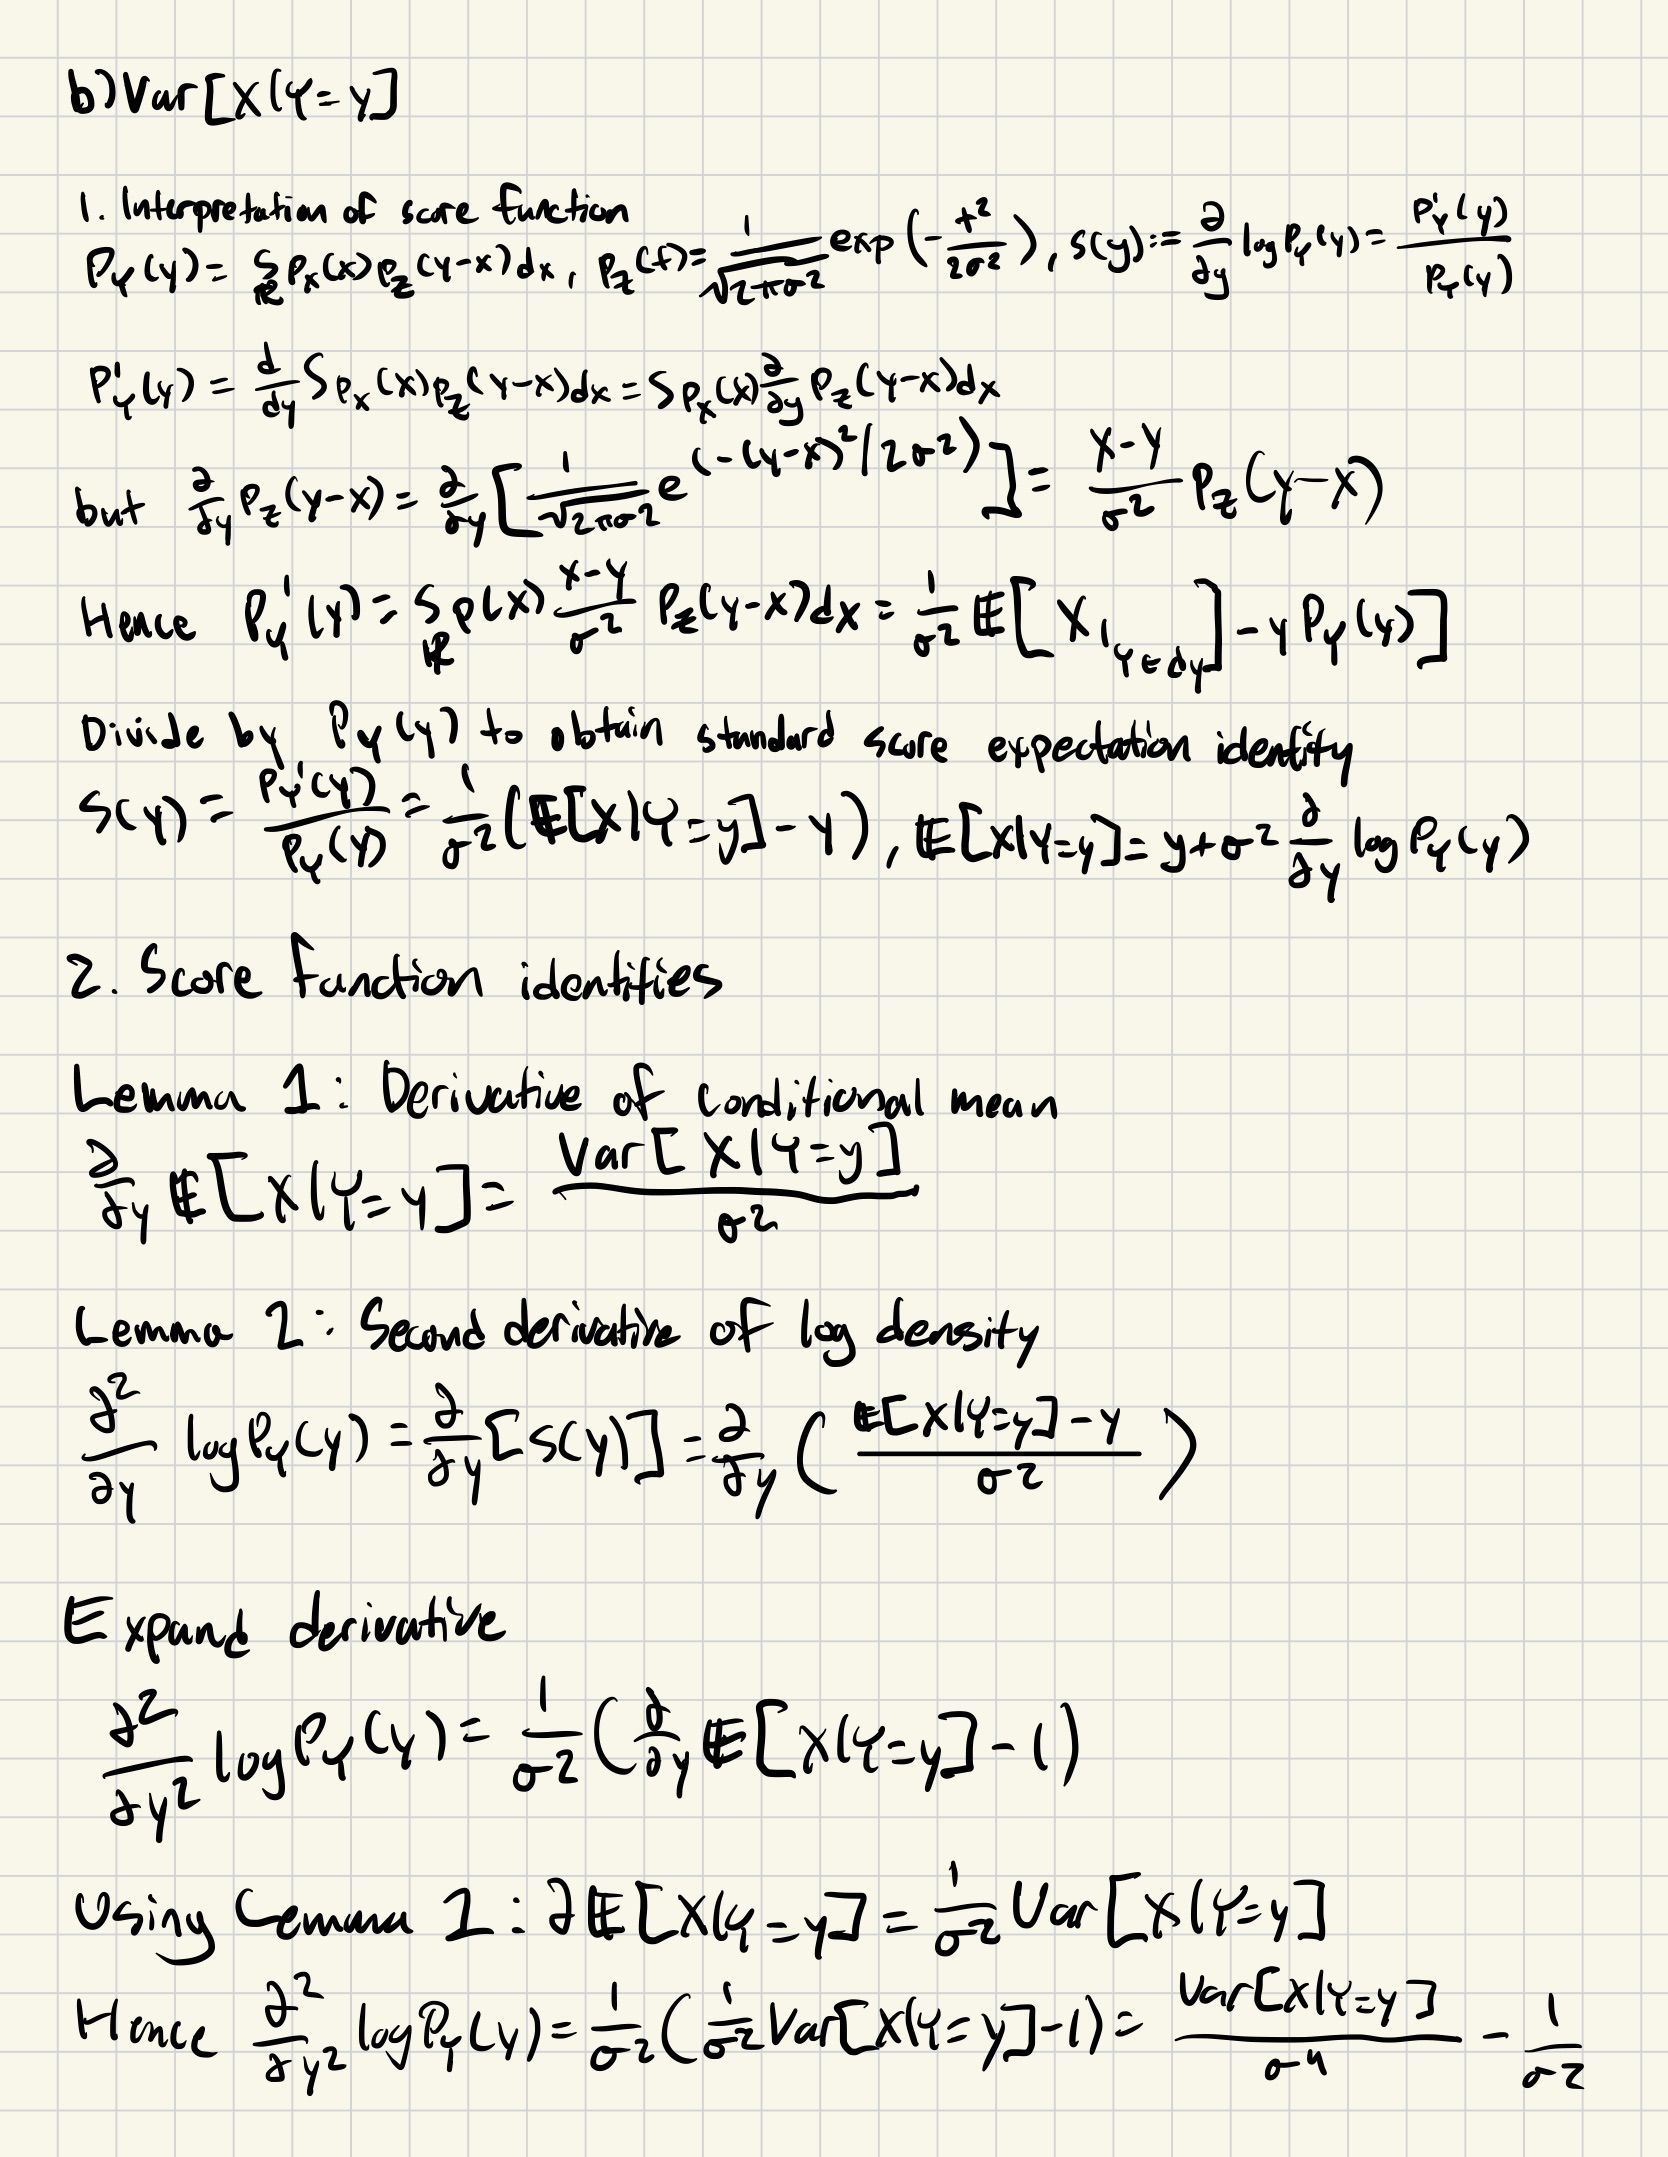 b) Var[X|Y=y]
1. Interpretation of score function
P_Y(y) = ∫_ℝ p_X(x) p_Z(y-x) dx, p_Z(t) = 1/√(2πσ²) exp(-t²/2σ²), s(y) := ∂/∂y log P_Y(y) = P'_Y(y)/P_Y(y)
P'_Y(y) = d/dy ∫ p_X(x) p_Z(y-x) dx = ∫ p_X(x) ∂/∂y p_Z(y-x) dx
but ∂/∂y p_Z(y-x) = ∂/∂y [1/√(2πσ²) e^(-(y-x)²/2σ²)] = x-y/σ² p_Z(y-x)
Hence P_Y'(y) = ∫_ℝ p(x) x-y/σ² p_Z(y-x) dx = 1/σ² 𝔼[X 1_{Y∈dy}] - y P_Y(y)]
Divide by P_Y(y) to obtain standard score expectation identity
s(y) = P_Y'(y)/P_Y(y) = 1/σ² (𝔼[X|Y=y] - y), 𝔼[X|Y=y] = y + σ² ∂/∂y log P_Y(y)
2. Score function identities
Lemma 1: Derivative of conditional mean
∂/∂y 𝔼[X|Y=y] = Var[X|Y=y]/σ²
Lemma 2: Second derivative of log density
∂²/∂y log P_Y(y) = ∂/∂y [s(y)] = ∂/∂y (𝔼[X|Y=y] - y/σ²)
Expand derivative
∂²/∂y² log P_Y(y) = 1/σ² (∂/∂y 𝔼[X|Y=y] - 1)
Using Lemma 1: ∂𝔼[X|Y=y] = 1/σ² Var[X|Y=y]
Hence ∂²/∂y² log P_Y(y) = 1/σ² (1/σ² Var[X|Y=y] - 1) = Var[X|Y=y]/σ⁴ - 1/σ²